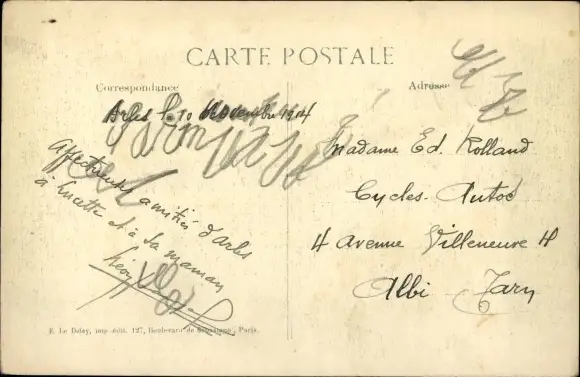 CARTE POSTALE
Correspondance
Adresse
Arles le 10 Novembre 1914
Affectueuses amitiés d'Arles
à Lucette et à sa maman
Madame Ed. Rolland
Cycles-Autos
4 Avenue Villeneuve 4
Albi Tarn
E. Le Deley, imp.-édit. 127, Boulevard de Sébastopol, Paris.